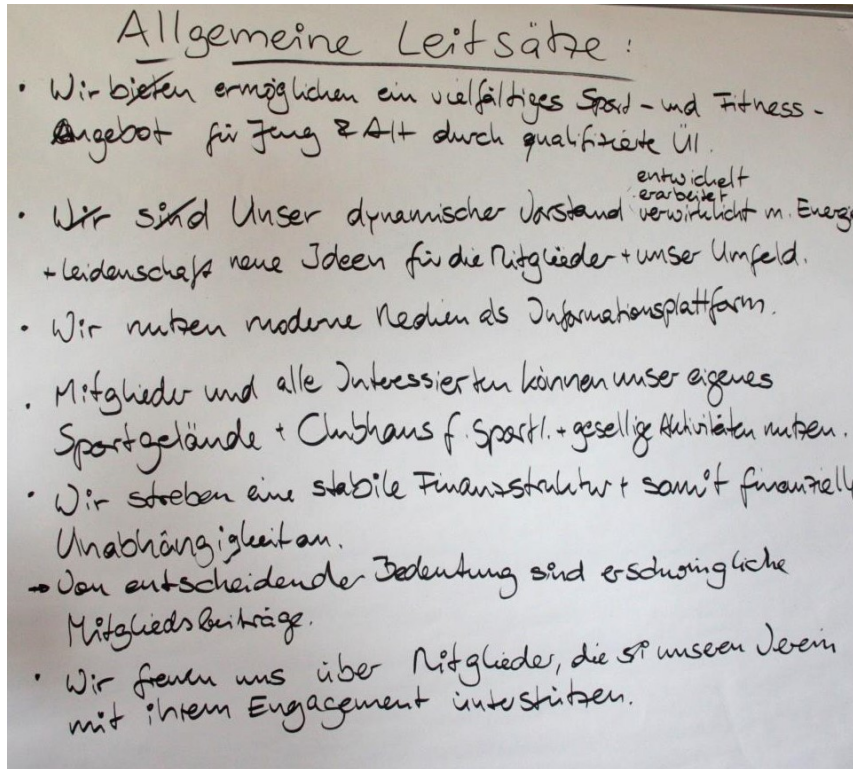 Allgemeine Leitsätze:
• Wir bieten ermöglichen ein vielfältiges Sport- und Fitness-
Angebot für Jung & Alt durch qualifizierte ÜL.
entwickelt
erarbeitet
• Wir sind Unser dynamischer Vorstand verwirklicht m. Energie
+ Leidenschaft neue Ideen für die Mitglieder + unser Umfeld.
• Wir nutzen moderne Medien als Informationsplattform.
• Mitglieder und alle Interessierten können unser eigenes
Sportgelände + Clubhaus f. sportl. + gesellige Aktivitäten nutzen.
• Wir streben eine stabile Finanzstruktur + somit finanzielle
Unabhängigkeit an.
→ Von entscheidender Bedeutung sind erschwingliche
Mitgliedsbeiträge.
• Wir freuen uns über Mitglieder, die unseren Verein
mit ihrem Engagement unterstützen.